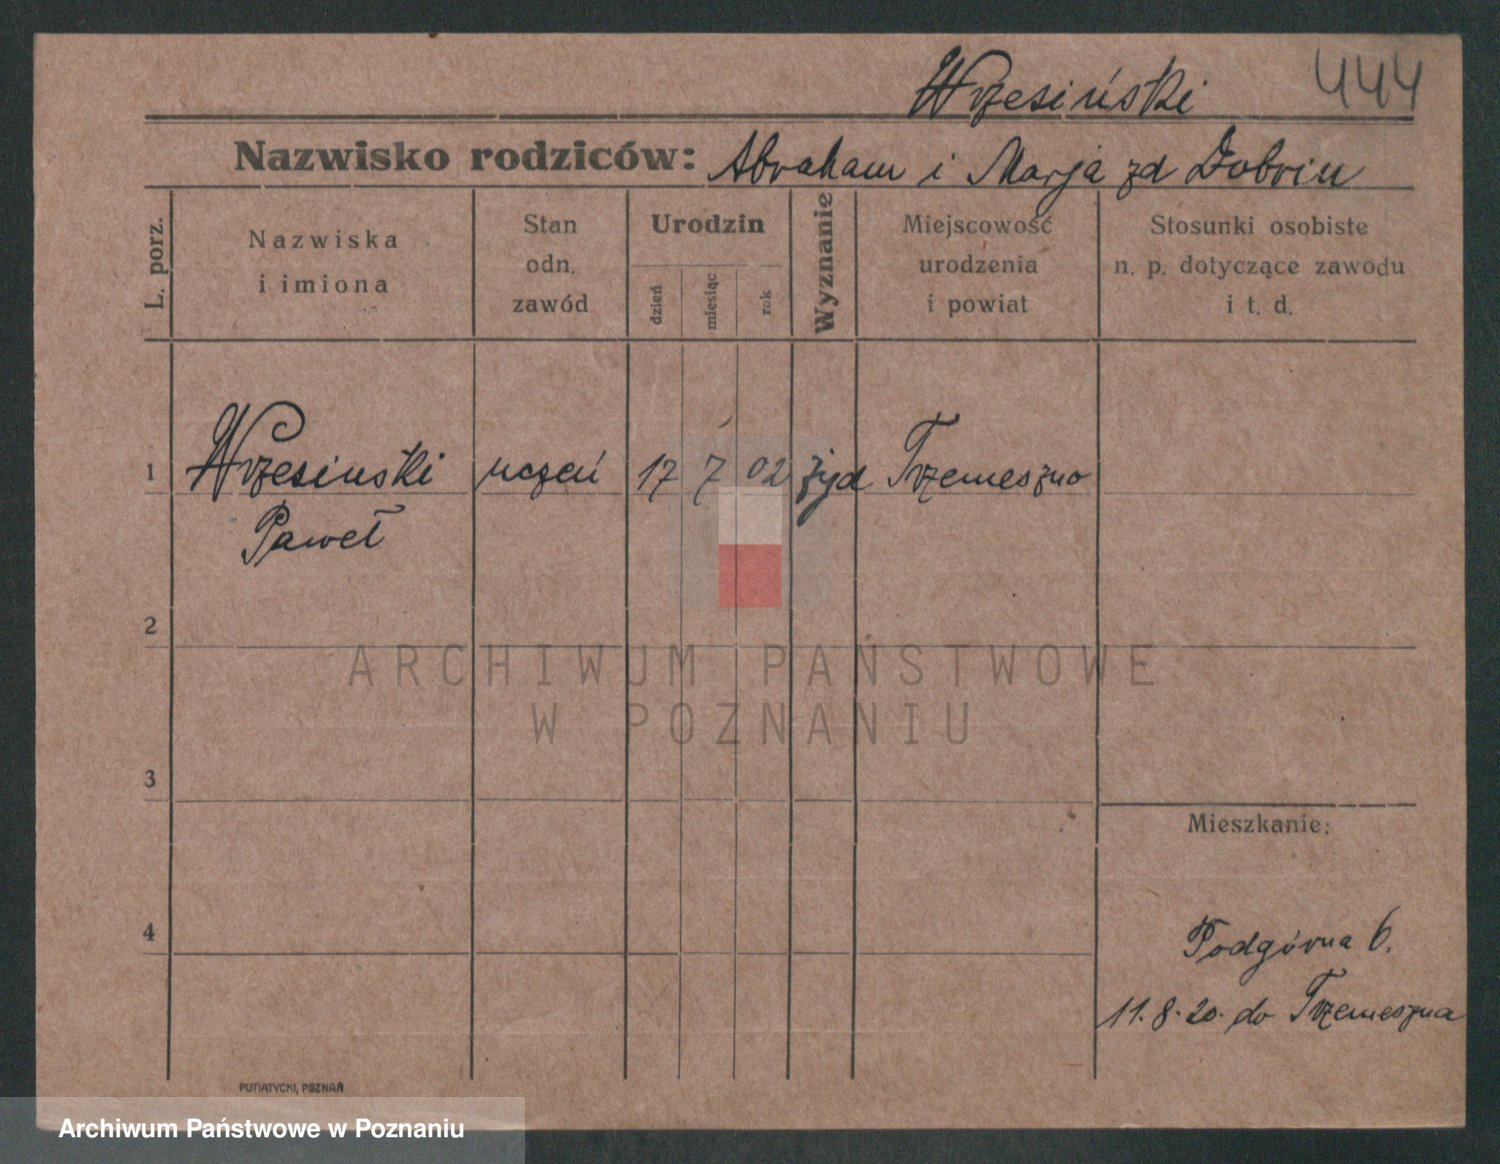 Wrzesiński 444
Nazwisko rodziców: Abraham i Marja zd Dobrin
L. porz.
Nazwiska
i imiona
Stan
odn.
zawód
Urodzin
dzień
miesiąc
rok
Wyznanie
Miejscowość
urodzenia
i powiat
Stosunki osobiste
n. p. dotyczące zawodu
i t. d.
1 Wrzesinski uczeń 17 7 02 żyd Trzemeszno
Paweł
2
ARCHIWUM PAŃSTWOWE
W POZNANIU
3
Mieszkanie:
4
Podgórna 6.
11.8.20. do Trzemeszna
PUTIATYCKI, POZNAŃ
Archiwum Państwowe w Poznaniu